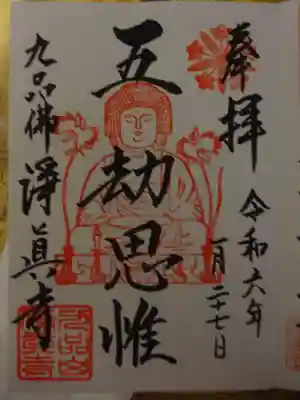 奉拝
令和六年
一月二十七日
五劫思惟
九品佛 淨眞寺